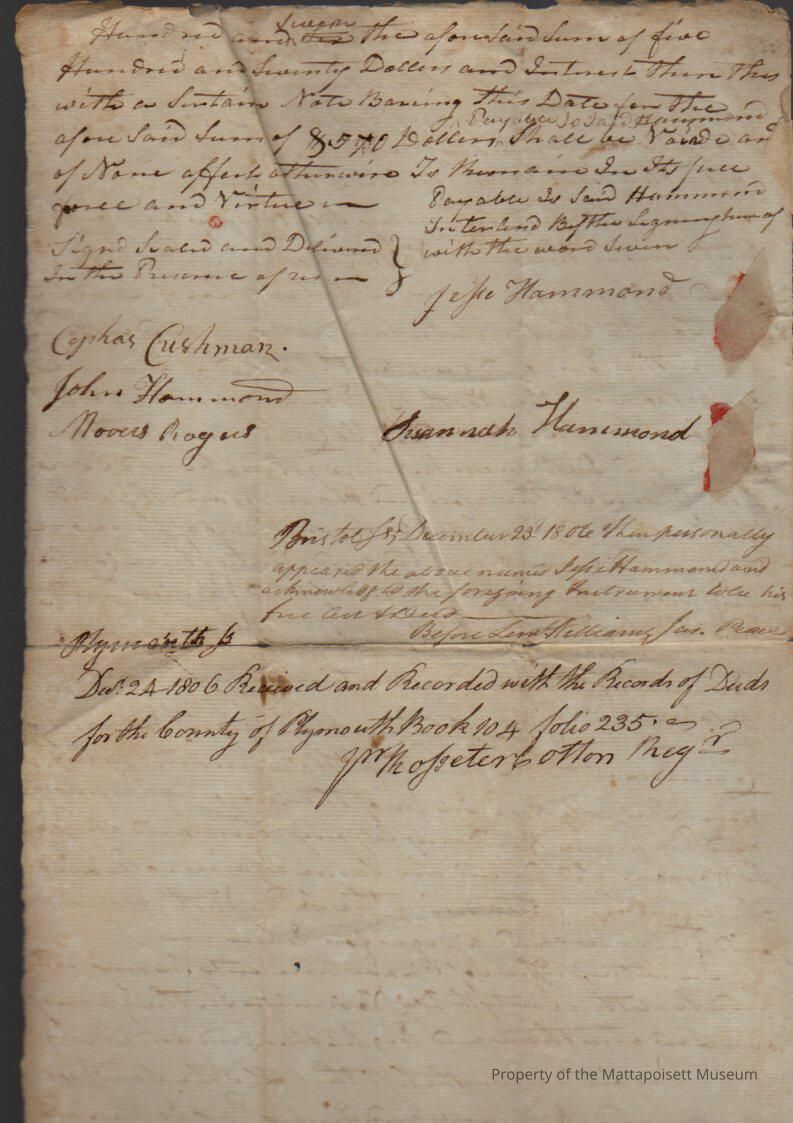 Seven
Hundred and Six the afore Said Sum of five
Hundred and Seventy Dollers and Interest then this
with a Sertain Note Baring this Date for the
Payable to Said Hammond
afore Said Sum of $570 Dollers Shall be Voide and
of None affect otherwise To Remain In Its full
forse and Virtue
Payable to Said Hammond
Interlind Before Signing here of
with the word Seven
Signd Sealed and Delivered
In the Presence of us
Jesse Hammond
Cephas Cushman.
John Hammond
Moors Rogers
Susannah Hammond
Bristol Ss; December 23d 1806 Then personally
appeared the above named Jesse Hammond and
acknowledged the foregoing Instrument to be his
free Act & Deed
Before Lem Williams Jus. Peace
Plymouth Ss
Decr 24 1806 Received and Recorded with the Records of Deeds
for the County of Plymouth Book 104 folio 235.
pr Rosseter Cotton Regr
Property of the Mattapoisett Museum